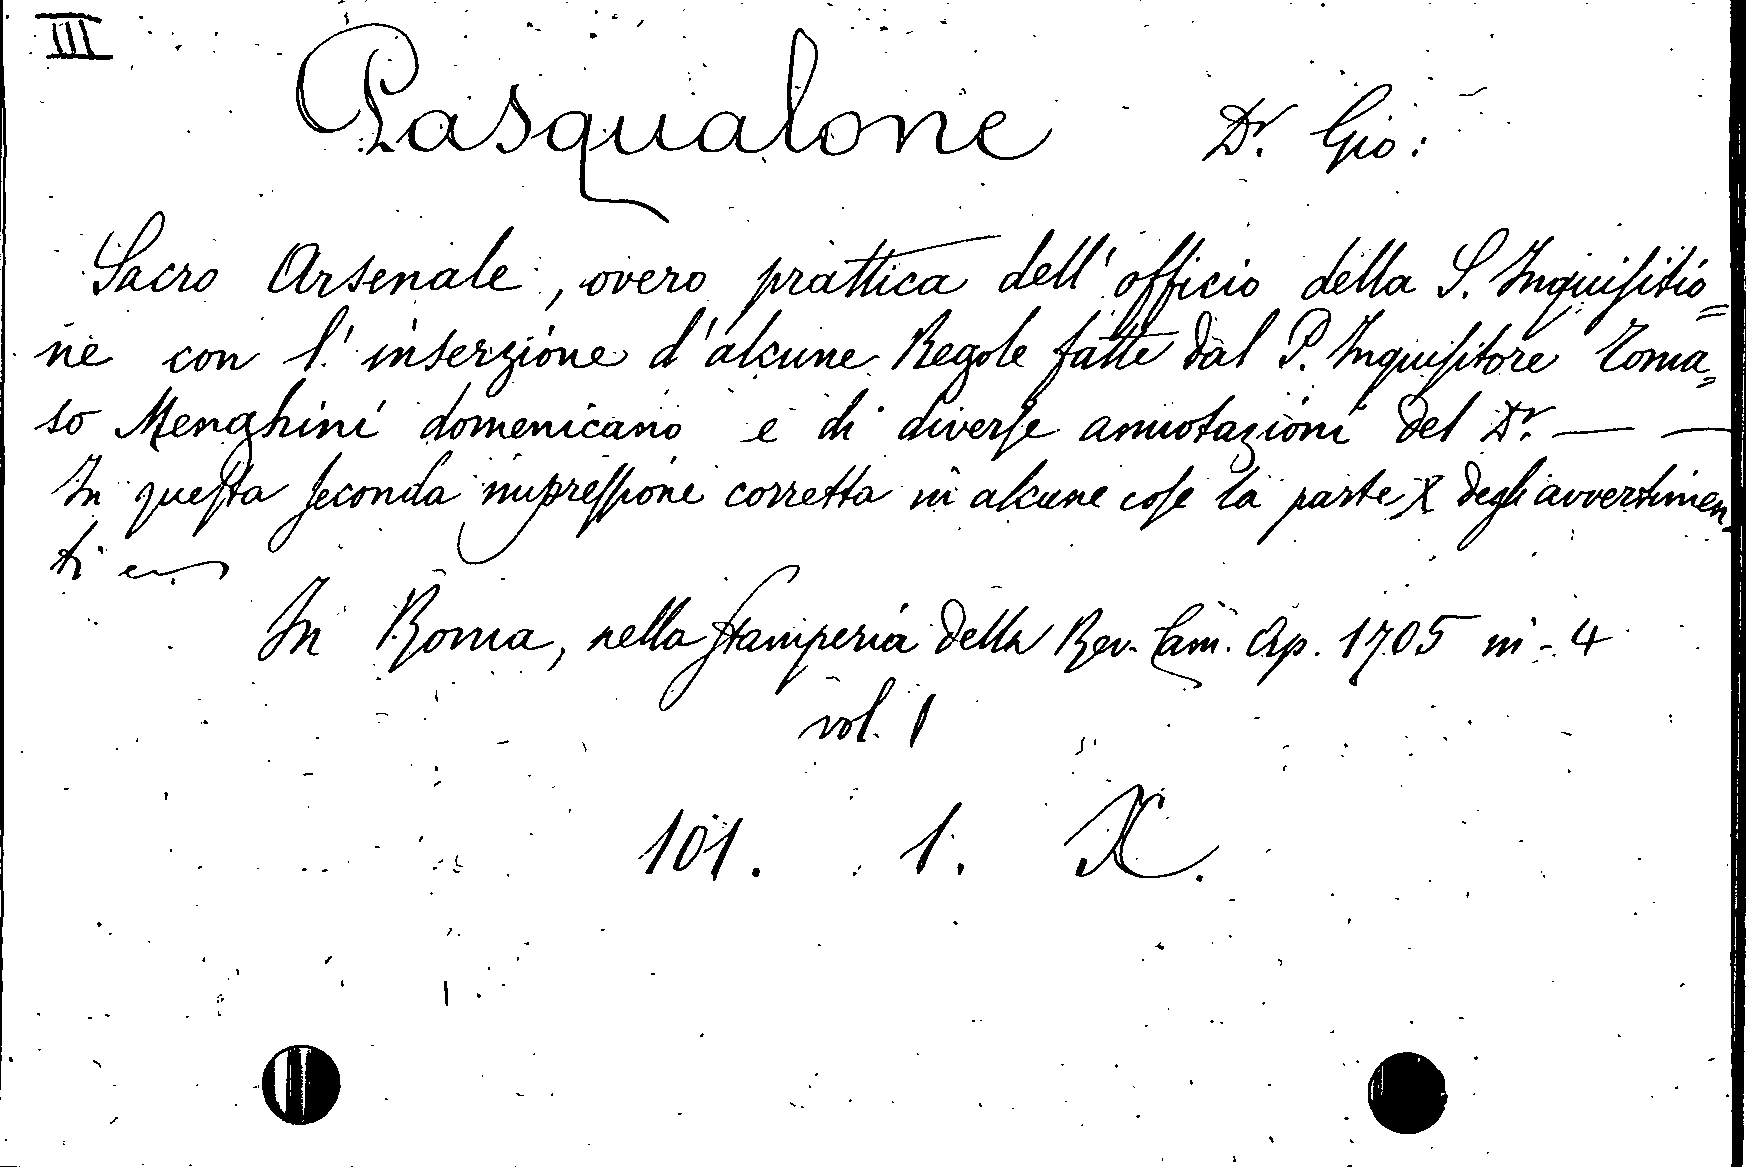 III
Pasqualone Dr. Gio:
Sacro Arsenale, overo prattica dell'officio della S. Inquisitio=
ne con l'inserzione d'alcune Regole fatte dal P. Inquisitore Toma=
so Menghini domenicano e di diverse annotazioni del Dr. — —
In questa seconda impressione corretta in alcune cose la parte X degli avvertimen=
ti
In Roma, nella stamperia della Rev. Cam. Ap. 1705 in-4
vol. 1
101. 1. X.